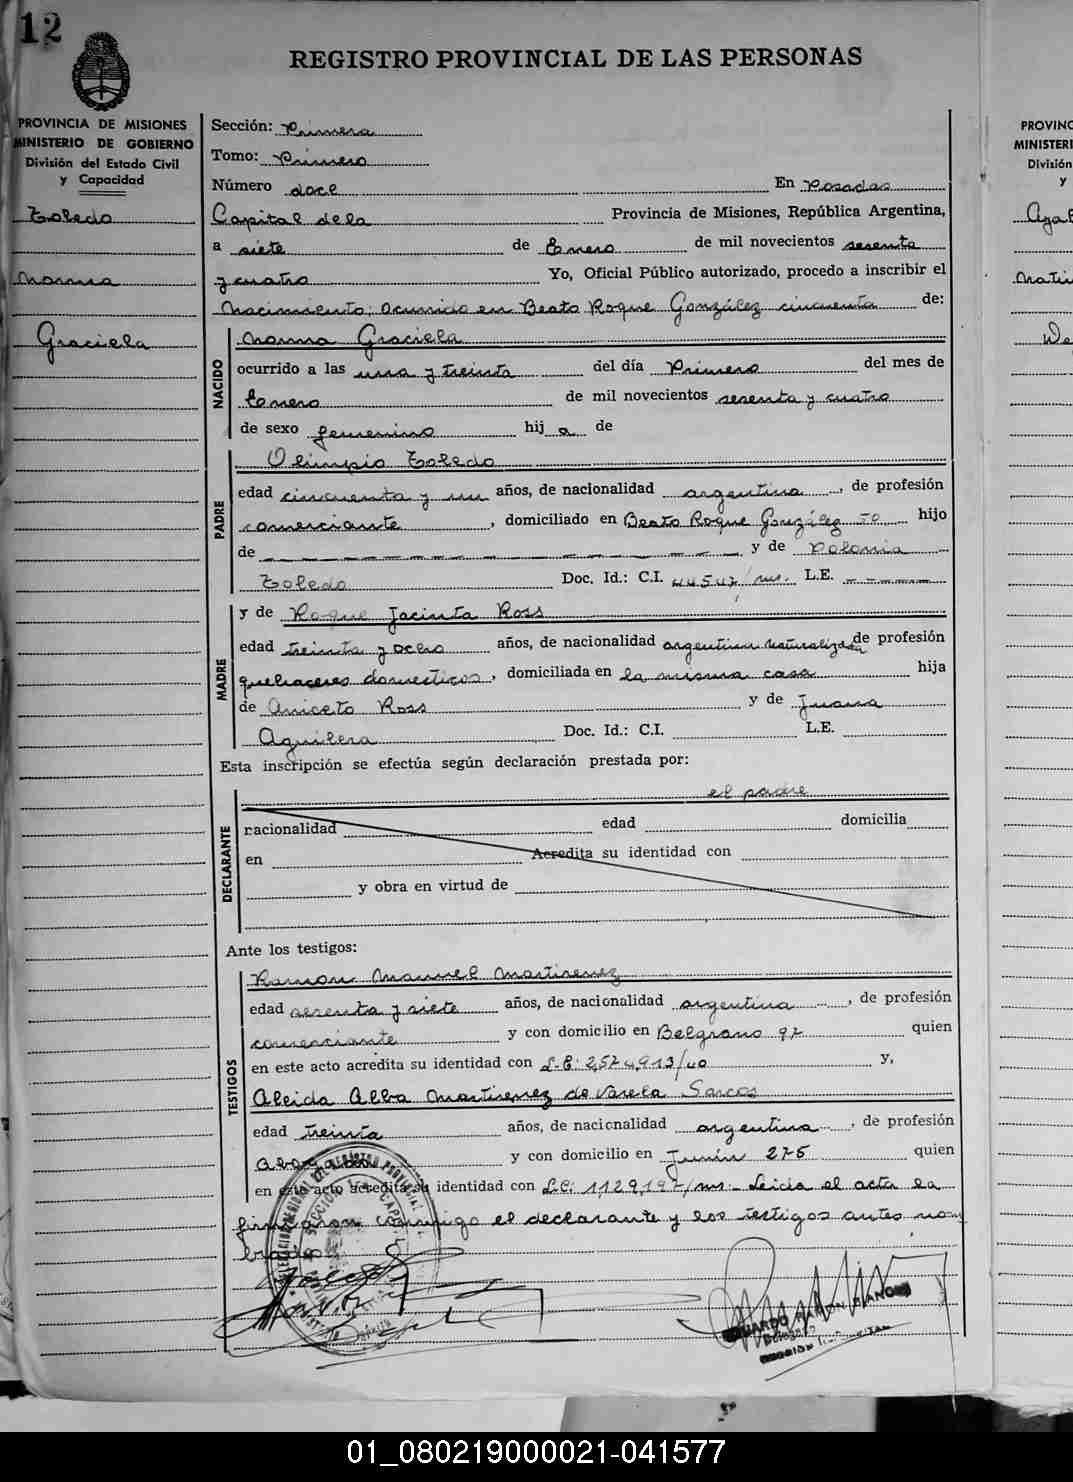 12
REGISTRO PROVINCIAL DE LAS PERSONAS
PROVINCIA DE MISIONES
MINISTERIO DE GOBIERNO
División del Estado Civil
y Capacidad
Toledo
Norma
Graciela
Sección: Primera
Tomo: Primero
Número doce En Posadas
Capital de la Provincia de Misiones, República Argentina,
a siete de Enero de mil novecientos sesenta
y cuatro Yo, Oficial Público autorizado, procedo a inscribir el
Nacimiento; ocurrido en Beato Roque González cincuenta de:
NACIDO
Norma Graciela
ocurrido a las una y treinta del día Primero del mes de
Enero de mil novecientos sesenta y cuatro
de sexo femenino hij a de
PADRE
Olimpio Toledo
edad cincuenta y un años, de nacionalidad argentina, de profesión
comerciante, domiciliado en Beato Roque González 50 hijo
de — — — — — — — — — — y de Polonia
Toledo Doc. Id.: C.I. 44547/ms. L.E. — — — —
MADRE
y de Roque Jacinta Ross
edad treinta y ocho años, de nacionalidad argentina naturalizada de profesión
quehaceres domesticos, domiciliada en la misma casa hija
de Aniceto Ross y de Juana
Aguilera Doc. Id.: C.I. L.E.
Esta inscripción se efectúa según declaración prestada por:
DECLARANTE
el padre
nacionalidad edad domicilia
en Acredita su identidad con
y obra en virtud de
Ante los testigos:
TESTIGOS
Ramon Manuel Martinez
edad sesenta y siete años, de nacionalidad argentina, de profesión
comerciante y con domicilio en Belgrano 97 quien
en este acto acredita su identidad con L.E: 2,574,913/40 y,
Aleida Alba Martinez de Varela Sarcos
edad treinta años, de nacionalidad argentina, de profesión
abogada y con domicilio en Junín 275 quien
en este acto acredita su identidad con L.C: 1,129,197/ms.- Leida el acta la
firmaron conmigo el declarante y los testigos antes nom
brados
PROVINC
MINISTERI
División
y
01_080219000021-041577